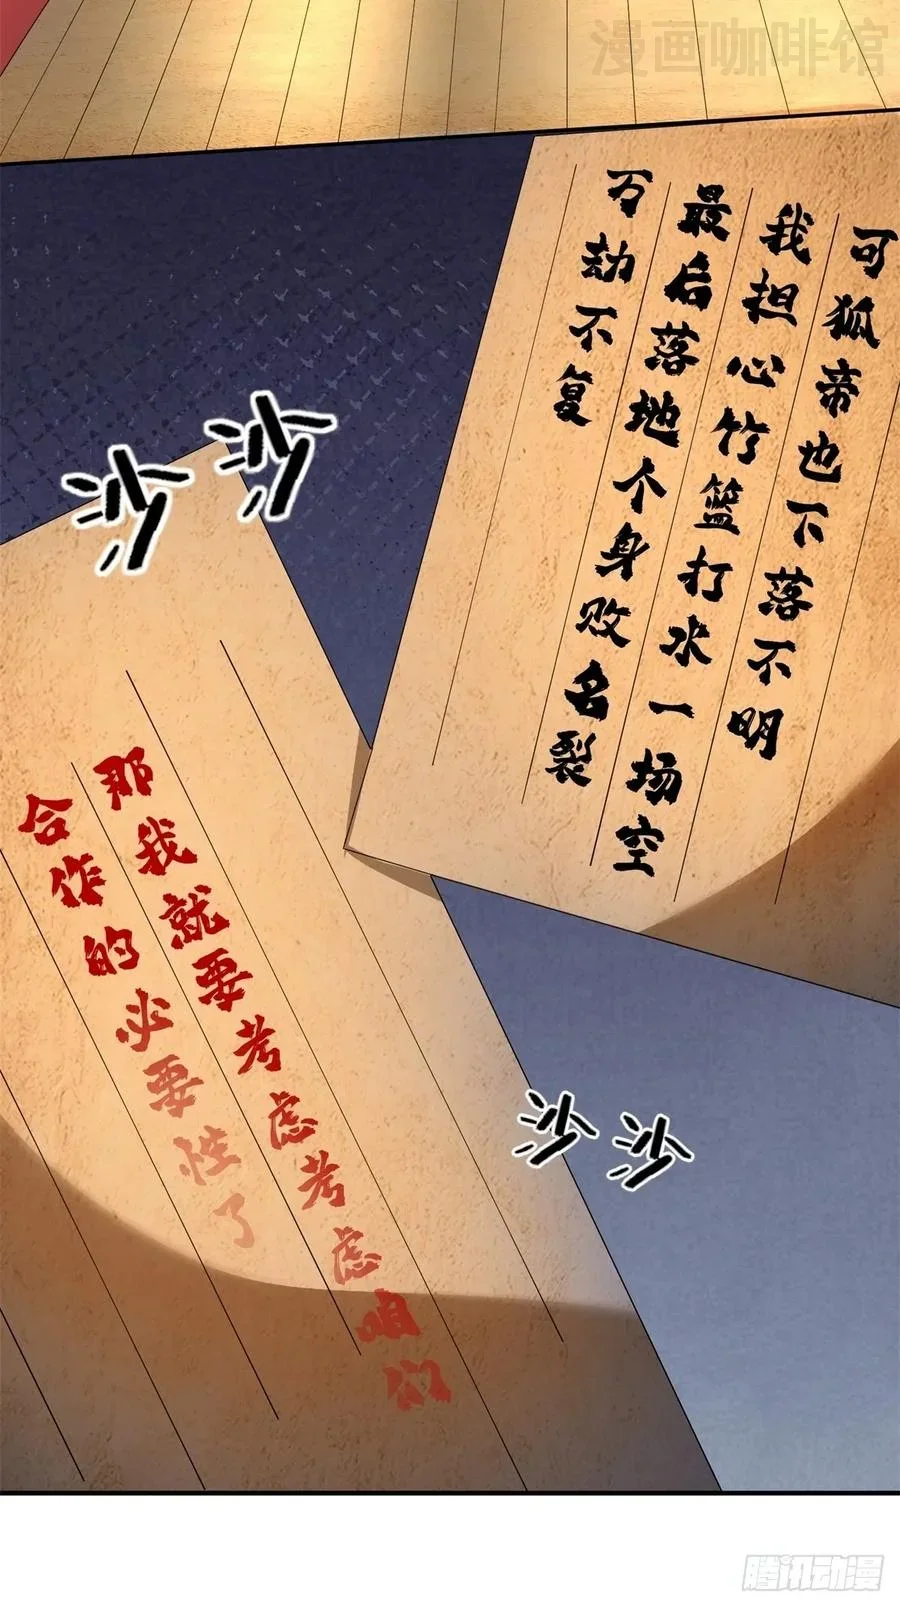 漫画咖啡馆
可狐帝也下落不明
我担心竹篮打水一场空
最后落地个身败名裂
万劫不复
沙沙
那我就要考虑考虑咱们
合作的必要性了
沙沙
腾讯动漫